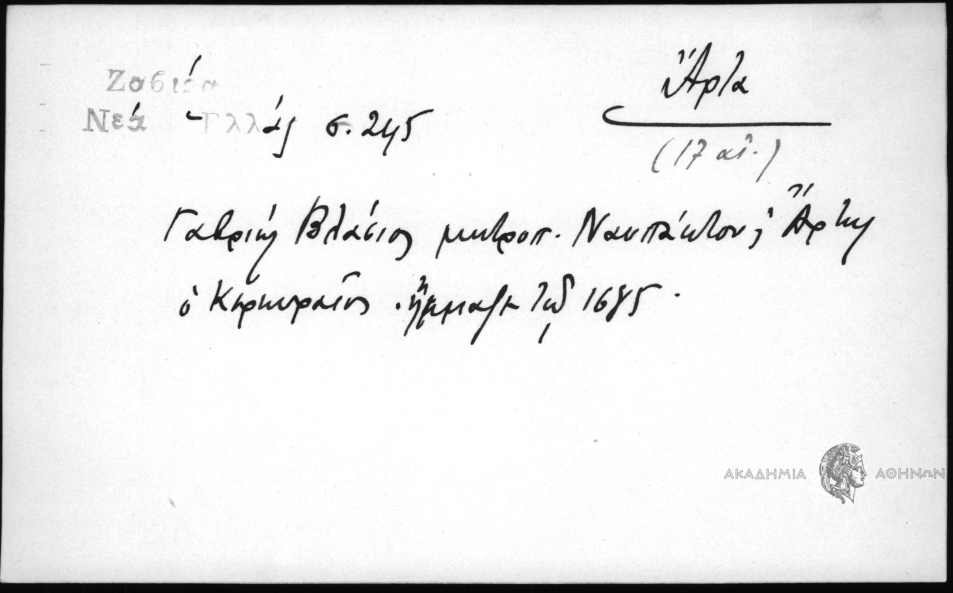 Ζαβίρα
Νέα Ἑλλάς σ. 245
Ἄρτα
(17 αἰ.)
Γαβριήλ Βλάσιος μητροπ. Ναυπάκτου καὶ Ἄρτης
ὁ Κερκυραῖος. ἤκμαζε τῷ 1685.
ΑΚΑΔΗΜΙΑ ΑΘΗΝΩΝ